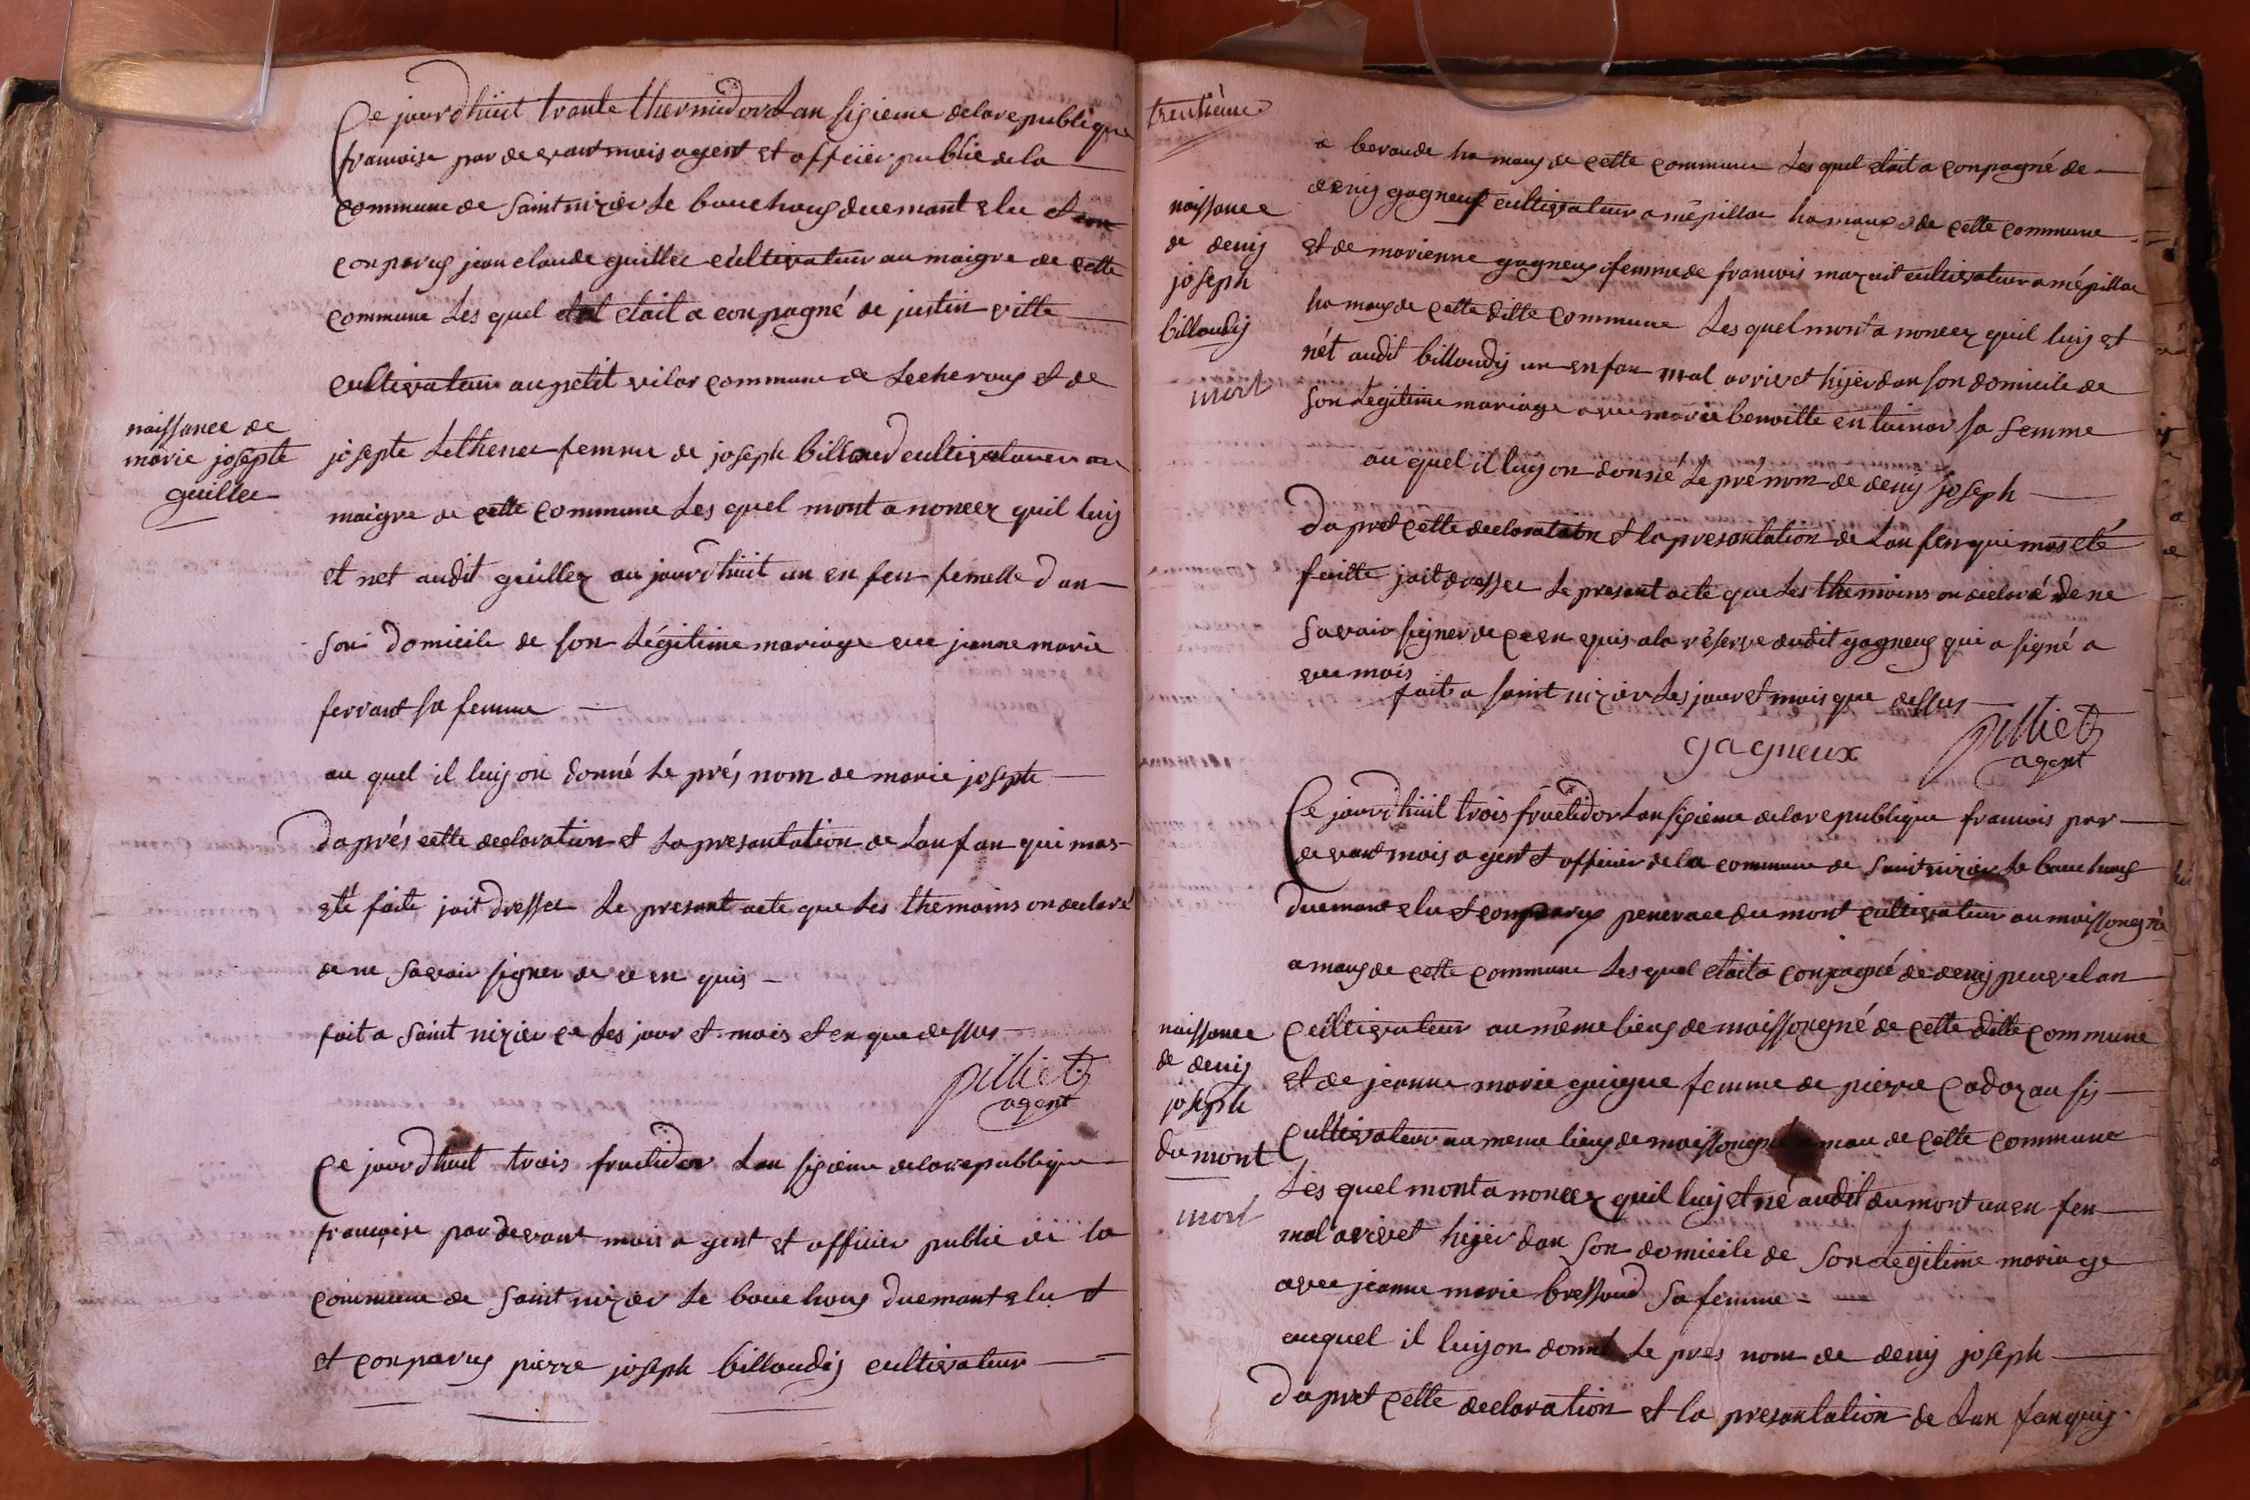 Ce jourdhuit trante thermidor Lan sixieme delarepublique
francoise par de evant mois agent et officier public de la
commune de saint nizier Le bouchoug duemant elu et son
conparus jean claude guillee cultivateur au maigre de cette
commune Les quel etait a conpagné de justin ville
cultivateur au petit vilar commune de Lecheroug et de
naissance de
marie josepte
guillee
josepte Lethenet femme de joseph billoud cultivatuer au
maigre de cette commune Les quel mont a noncez quil luis
et net audit guillez au jourdhuit un en fen femelle dan
son domicile de son Légitime mariage vec jeanne marie
ferrant sa femme
au quel il luij on donné Le prés nom de marie josepte
daprés cette declaration et La presantation de Lanfan qui mas
eté faite jait dresser Le presant acte que Les themoins on declaré
de ne savoir signer de ce en quis
fait a saint nizier ce Les jour et mois et en que dessus
pilliet
agent
Ce jourdhuit trois fructidor Lan sixieme delarepublique
francoise par devant mois a gent et officier public de la
commune de saint nizier Le bouchoug duemant elu et
et conparus pierre joseph billoudij cultivateur
trentième
a beraude hamaug de cette commune Les quel etait a conpagné de
denij gagneux cultivateur a mépillat hamaux de cette commune
naissance
de denij
joseph
billoudij
mort
et de marienne gagneux femme de francois mazuit cultivateur a mépillat
hamaug de cette ditte commune Les quel mont a noncez quil luij et
nét audit billoudij un en fan mal arrivet hijer dan son domicile de
son Légitime mariage avec marie benoitte entuinar sa femme
au quel il luij on donné Le prénom de denij joseph
dapret cette declaration et la presantation de Lan fen qui mas eté
faitte jait dresser Le presant acte que Les themoins on declaré de ne
savoir signer de ce en quis a la réserve dudit gagneug qui a signé a
vec mois
fait a saint nizier Les jour et mois que dessus
gagneux
pilliet
agent
Ce jourdhuit trois fructidor Lan sixieme delarepublique francois par
devant mois a gent et officier de la commune de saint nizier Le bouchoug
duemant elu et conparus peneracedumont cultivateur au moissonegné
amaug de cette commune Les quel etait a conpagné de denij peuvelan
naissance
de denij
joseph
dumont
mort
cultivateur au même lieug de moissonegné de cette ditte commune
et de jeanne marie guigue femme de pierre Cadoz au sis
cultivateur au meme lieug de moissonegné mau de cette commune
Les quel mont a noncez quil luij et né audit dumont un en fen
mal arivet hijer dan son domicile de son Légitime mariage
avec jeanne marie bressoud sa femme
auquel il luij on donné Le prés nom de denij joseph
dapret cette declaration et la presantation de Lan fan quij